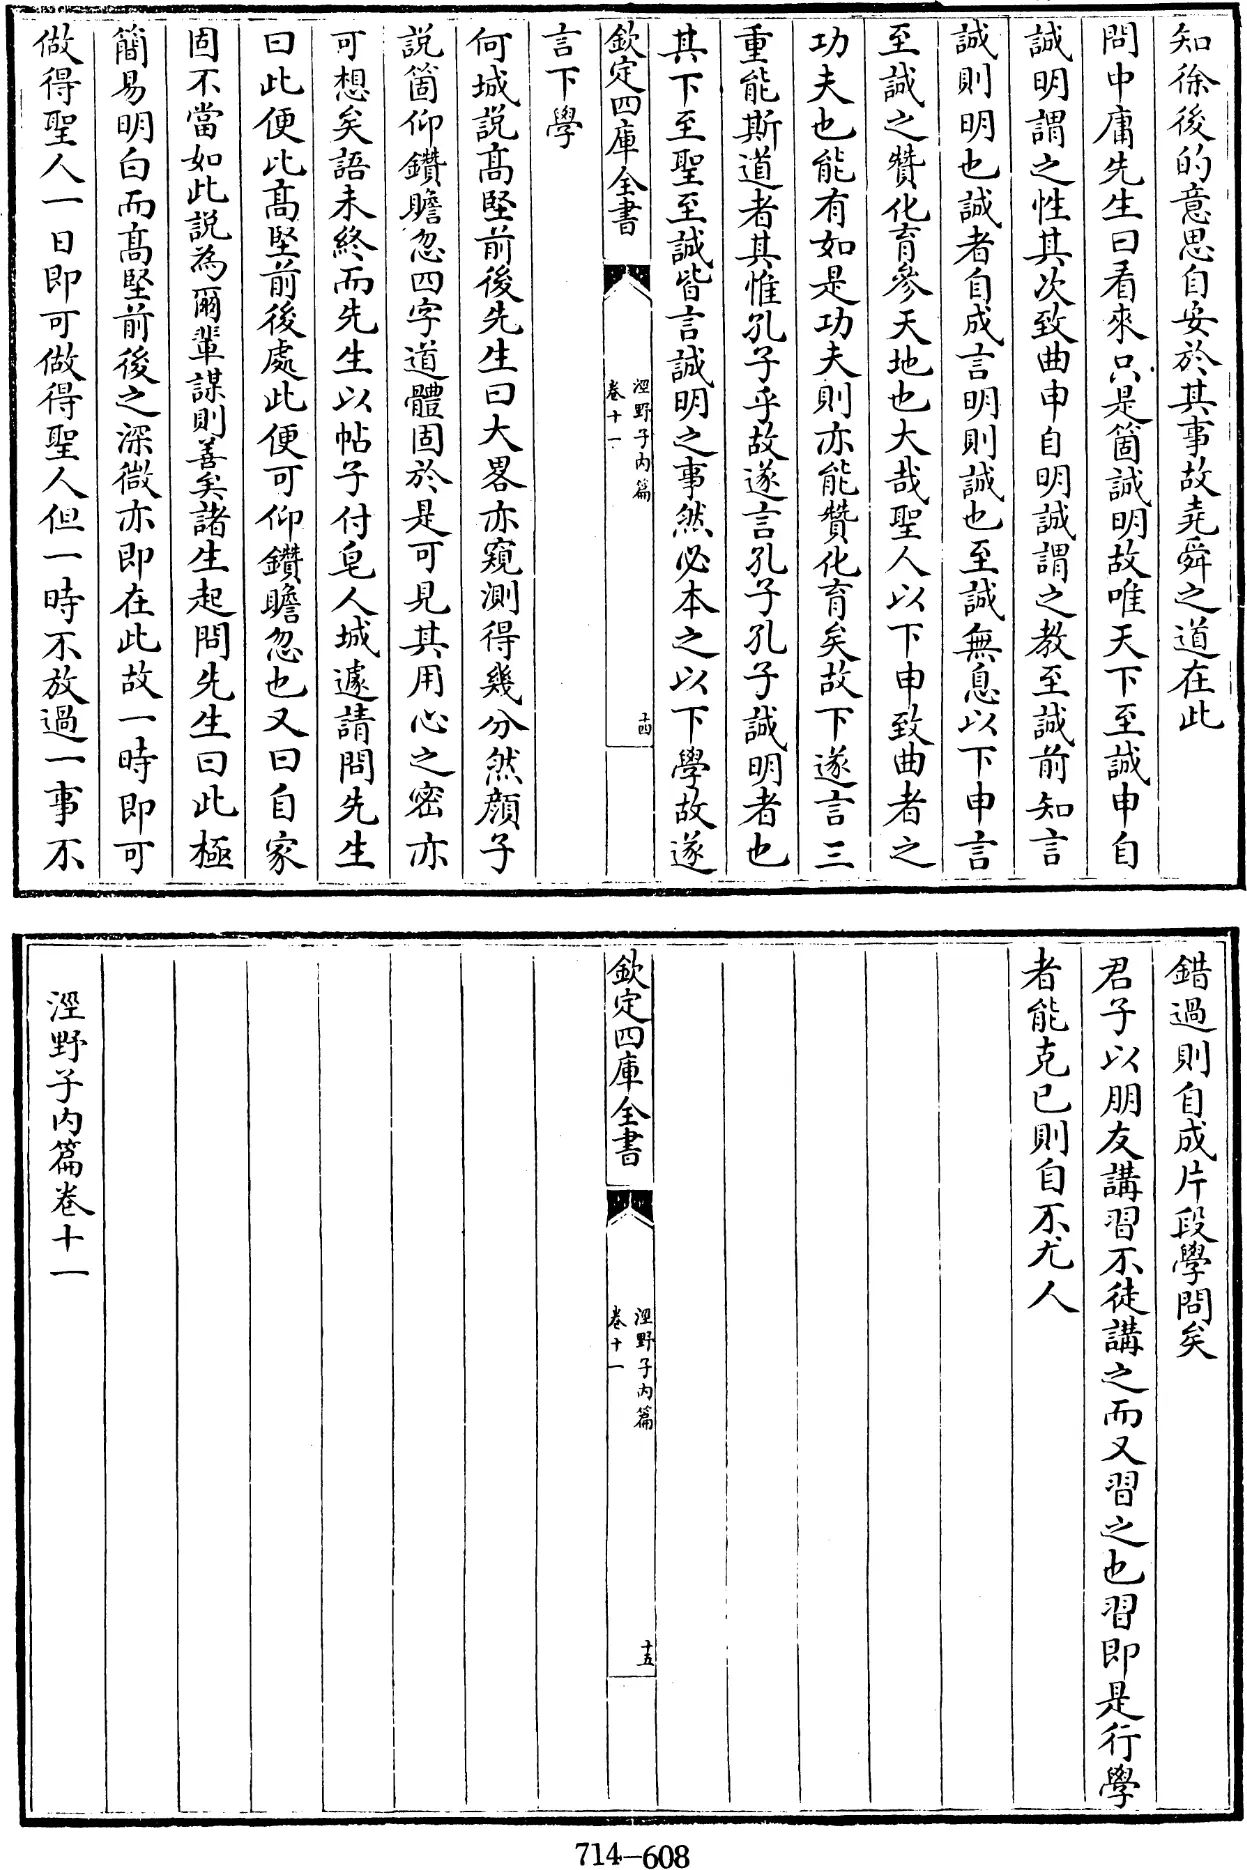 知徐後的意思自安於其事故堯舜之道在此
問中庸先生曰看來只是箇誠明故唯天下至誠申自
誠明謂之性其次致曲申自明誠謂之教至誠前知言
誠則明也誠者自成言明則誠也至誠無息以下申言
至誠之贊化育參天地也大哉聖人以下申致曲者之
功夫也能有如是功夫則亦能贊化育矣故下遂言三
重能斯道者其惟孔子乎故遂言孔子孔子誠明者也
其下至聖至誠皆言誠明之事然必本之以下學故遂
欽定四庫全書
涇野子内篇
卷十一
十四
言下學
何城説髙堅前後先生曰大畧亦窺測得幾分然顔子
説箇仰鑚瞻忽四字道體固於是可見其用心之密亦
可想矣語未終而先生以帖子付皂人城遽請問先生
曰此便比髙堅前後處此便可仰鑽瞻忽也又曰自家
固不當如此説為爾輩謀則善矣諸生起問先生曰此極
簡易明白而髙堅前後之深微亦即在此故一時即可
做得聖人一日即可做得聖人但一時不放過一事不
錯過則自成片段學問矣
君子以朋友講習不徒講之而又習之也習即是行學
者能克已則自不尤人
欽定四庫全書
涇野子内篇
卷十一
十五
涇野子内篇卷十一
714-608